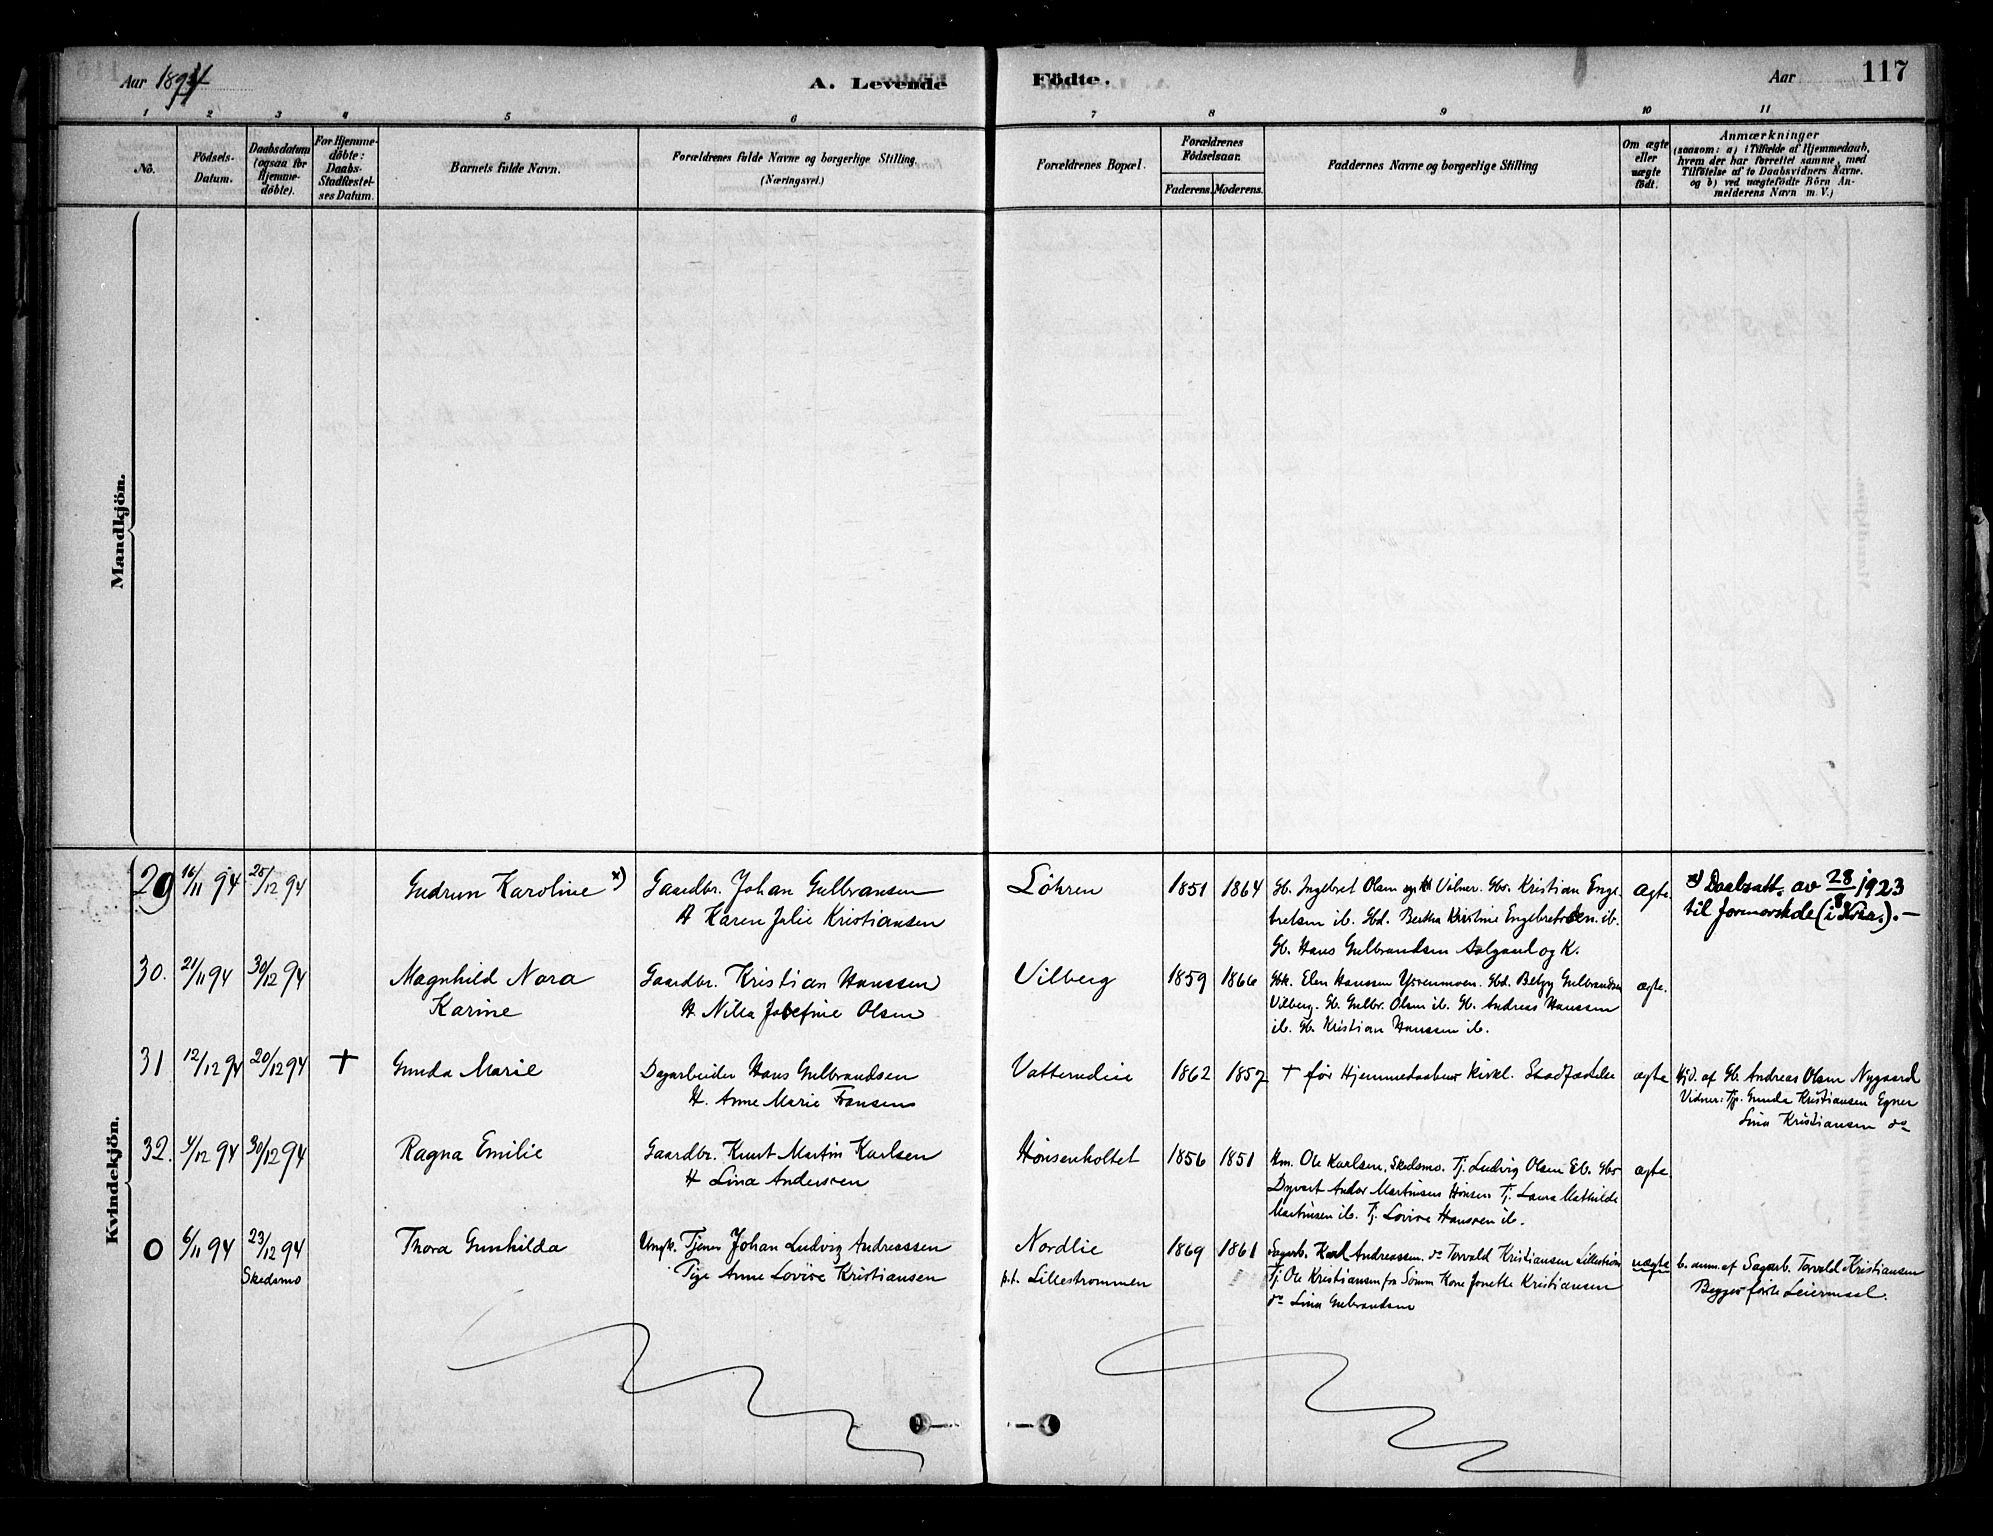 Aar 1894
A. Levende
Födte.
Aar
117
1 2 3 4 5 6 7 8 9 10 11
No.
Födsels-
Datum.
Daabsdatum
(ogsaa for
Hjemme-
döbte).
For Hjemme-
döbte:
Daabs-
Stadfæstel-
ses Datum.
Barnets fulde Navn.
Forældrenes fulde Navne og borgerlige Stilling.
(Næringsvei.)
Forældrenes Bopæl.
Forældrenes
Födselsaar.
Faderens. Moderens.
Faddernes Navne og borgerlige Stilling
Om ægte
eller
uægte
födt.
Anmærkninger
(saasom: a) i Tilfælde af Hjemmedaab,
hvem der har forrettet samme, med
Tilföielse af to Daabsvidners Navne.
og b) ved uægtefödte Börn An-
melderens Navn m. V.)
Mandkjön.
Kvindekjön.
29 16/11 94 25/12 94 Gudrun Karoline x) Gaardbr. Johan Gulbransen
H Karen Julie Kristiansen
Löhren 1851 1864 Gb. Ingebret Olsen og K Vilner. Gbs. Kristian Enge-
bretsen ib. Gbd. Bertha Kristine Engebretsen ib.
Gb. Hans Gulbrandsen Aalgaard og K.
ægte x) Daabsatt. av 28/8 1923
til formorskde (i Kra.). —
30. 21/11 94 30/12 94 Magnhild Nora
Karine
Gaardbr. Kristian Hanssen
H. Nilla Josefine Olsen
Vilberg 1859 1866 Gbk. Elen Hanssen Gbd. Gulbrandsen
Vilberg. Gb. Gulbr. Olsen ib. Gb. Andreas Hanssen
ib. Gb. Kristian Hanssen ib.
ægte.
31 12/12 94 20/12 94 + Gunda Marie Dagarbeider Hans Gulbrandsen
H. Anne Marie Fransen
1862 1857 + før Hjemmedaabens kirkl. Stadfæstelse ægte Hjd. af Gb. Andreas Olsen Nygaard
Vidner: Tj. Gunda Kristiansen Egner
Lina Kristiansen do
32. 4/12 94 30/12 94 Ragna Emilie Gaardbr. Knut Martin Karlsen
H Lina Andersen
Hønsenholtet 1856 1851 Hm. Ole Karlsen, Skedsmo. Tj. Ludvig Olsen Gbs
Andor Martinsen Hønsen Tj. Laura Mathilde
Martinsen ib. Tj. Lovise Hansen ib.
ægte
0 6/11 94 23/12 94 Thora Gunhilda Ungk. Tjener Johan Ludvig Andreassen
Skedsmo
Pige Anne Lovise Kristiansen
Nordlie
p.t. Lillestrommen
1869 1861 Sagarb. Karl Andreassen. do Torvald Kristiansen Lillestrøm
Tj Ole Kristiansen fra Kone Jonette Kristiansen
do Lina Gulbrandsen
uægte b. anm. af Sagarb. Torvald Kristiansen
Begges første Leiermaal.